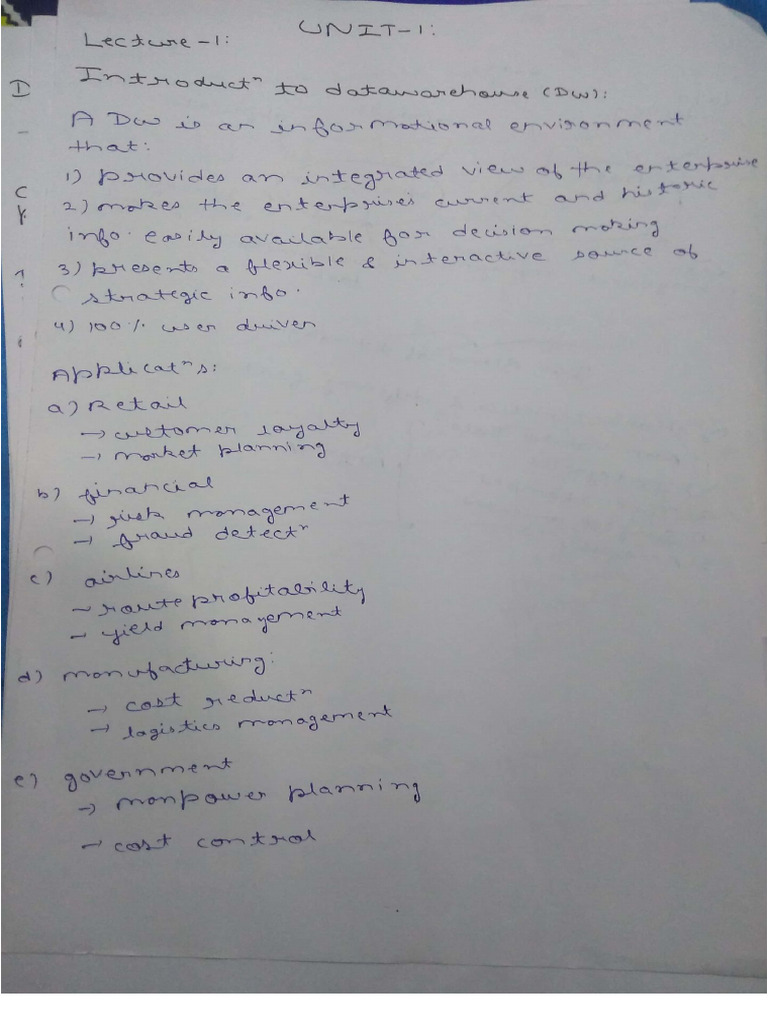 UNIT-1:
Lecture-1:
Introductⁿ to datawarehouse (DW):
A DW is an informational environment
that:
1) provides an integrated view of the enterprise
2) makes the enterprises current and historic
info. easily available for decision making
3) presents a flexible & interactive source of
strategic info.
4) 100% user driven
Applicatⁿs:
a) Retail
→ customer loyalty
→ market planning
b) financial
→ risk management
→ fraud detectⁿ
c) airlines
→ route profitability
→ yield management
d) manufacturing:
→ cost reductⁿ
→ logistics management
e) government
→ manpower planning
→ cost control